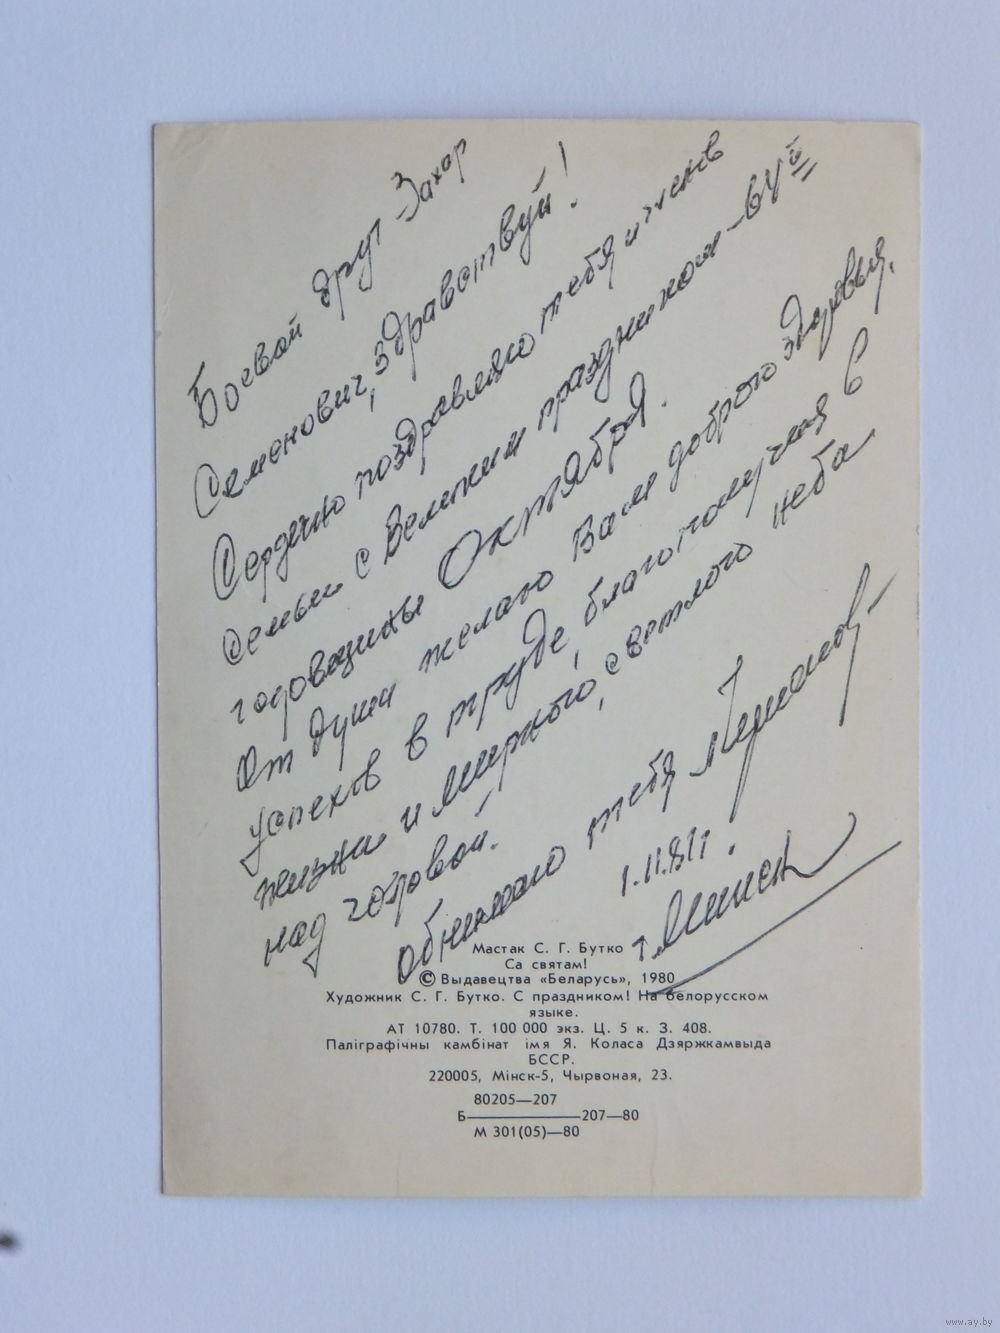 Боевой друг Захар
Семенович, здравствуй!
Сердечно поздравляю тебя и членов
семьи с Великим праздником - 64й
годовщины Октября.
От души желаю Вам доброго здоровья,
успехов в труде, благополучия в
жизни и мирного, светлого неба
над головой.
Обнимаю тебя
1.11.81г.
г. Минск
Мастак С. Г. Бутко
Са святам!
© Выдавецтва «Беларусь», 1980
Художник С. Г. Бутко. С праздником! На белорусском
языке.
АТ 10780. Т. 100 000 экз. Ц. 5 к. З. 408.
Паліграфічны камбінат імя Я. Коласа Дзяржкамвыда
БССР.
220005, Мінск-5, Чырвоная, 23.
80205—207
Б————207—80
М 301(05)—80
www.ay.by